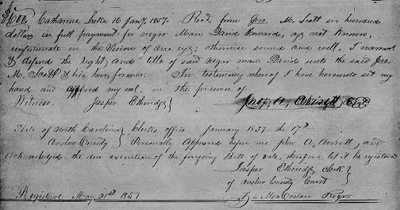 $600. Catharine Lake 16 Jany. 1857. Recd. from Geo. M. Scott six hundred
dollars in full payment for negro man David Edwards, age not known,
unfortunate in the vision of one eye; otherwise sound and well, I warrant
& defend the right and title of said negro man David unto the said Geo.
M. Scott & his heirs forever. In testimony whereof I have hereunto set my
hand and affixed my seal, in the presence of
Witness. Jasper Etheridge
State of North Carolina Clerks office January 1857 the 17th
Onslow County Personally Appeared before me John A. Averitt, and
Acknowledged the due execution of the foregoing Bill of Sale, therefore let it be registered
Jasper Etheridge Clerk
of Onslow County Court
Registered May 21st 1857